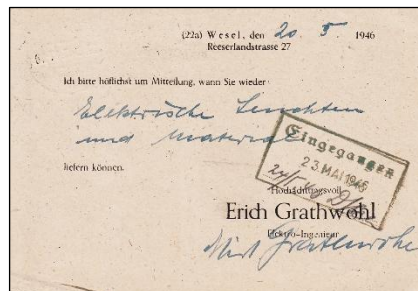 (22a) Wesel, den 20. 5. 1946
Reeserlandstrasse 27
Ich bitte höflichst um Mitteilung, wann Sie wieder
Elektrische Leuchten
und Material
liefern können.
Eingegangen
23 MAI 1946
Hochachtungsvoll
Erich Grathwohl
Elektro-Ingenieur
Grathwohl